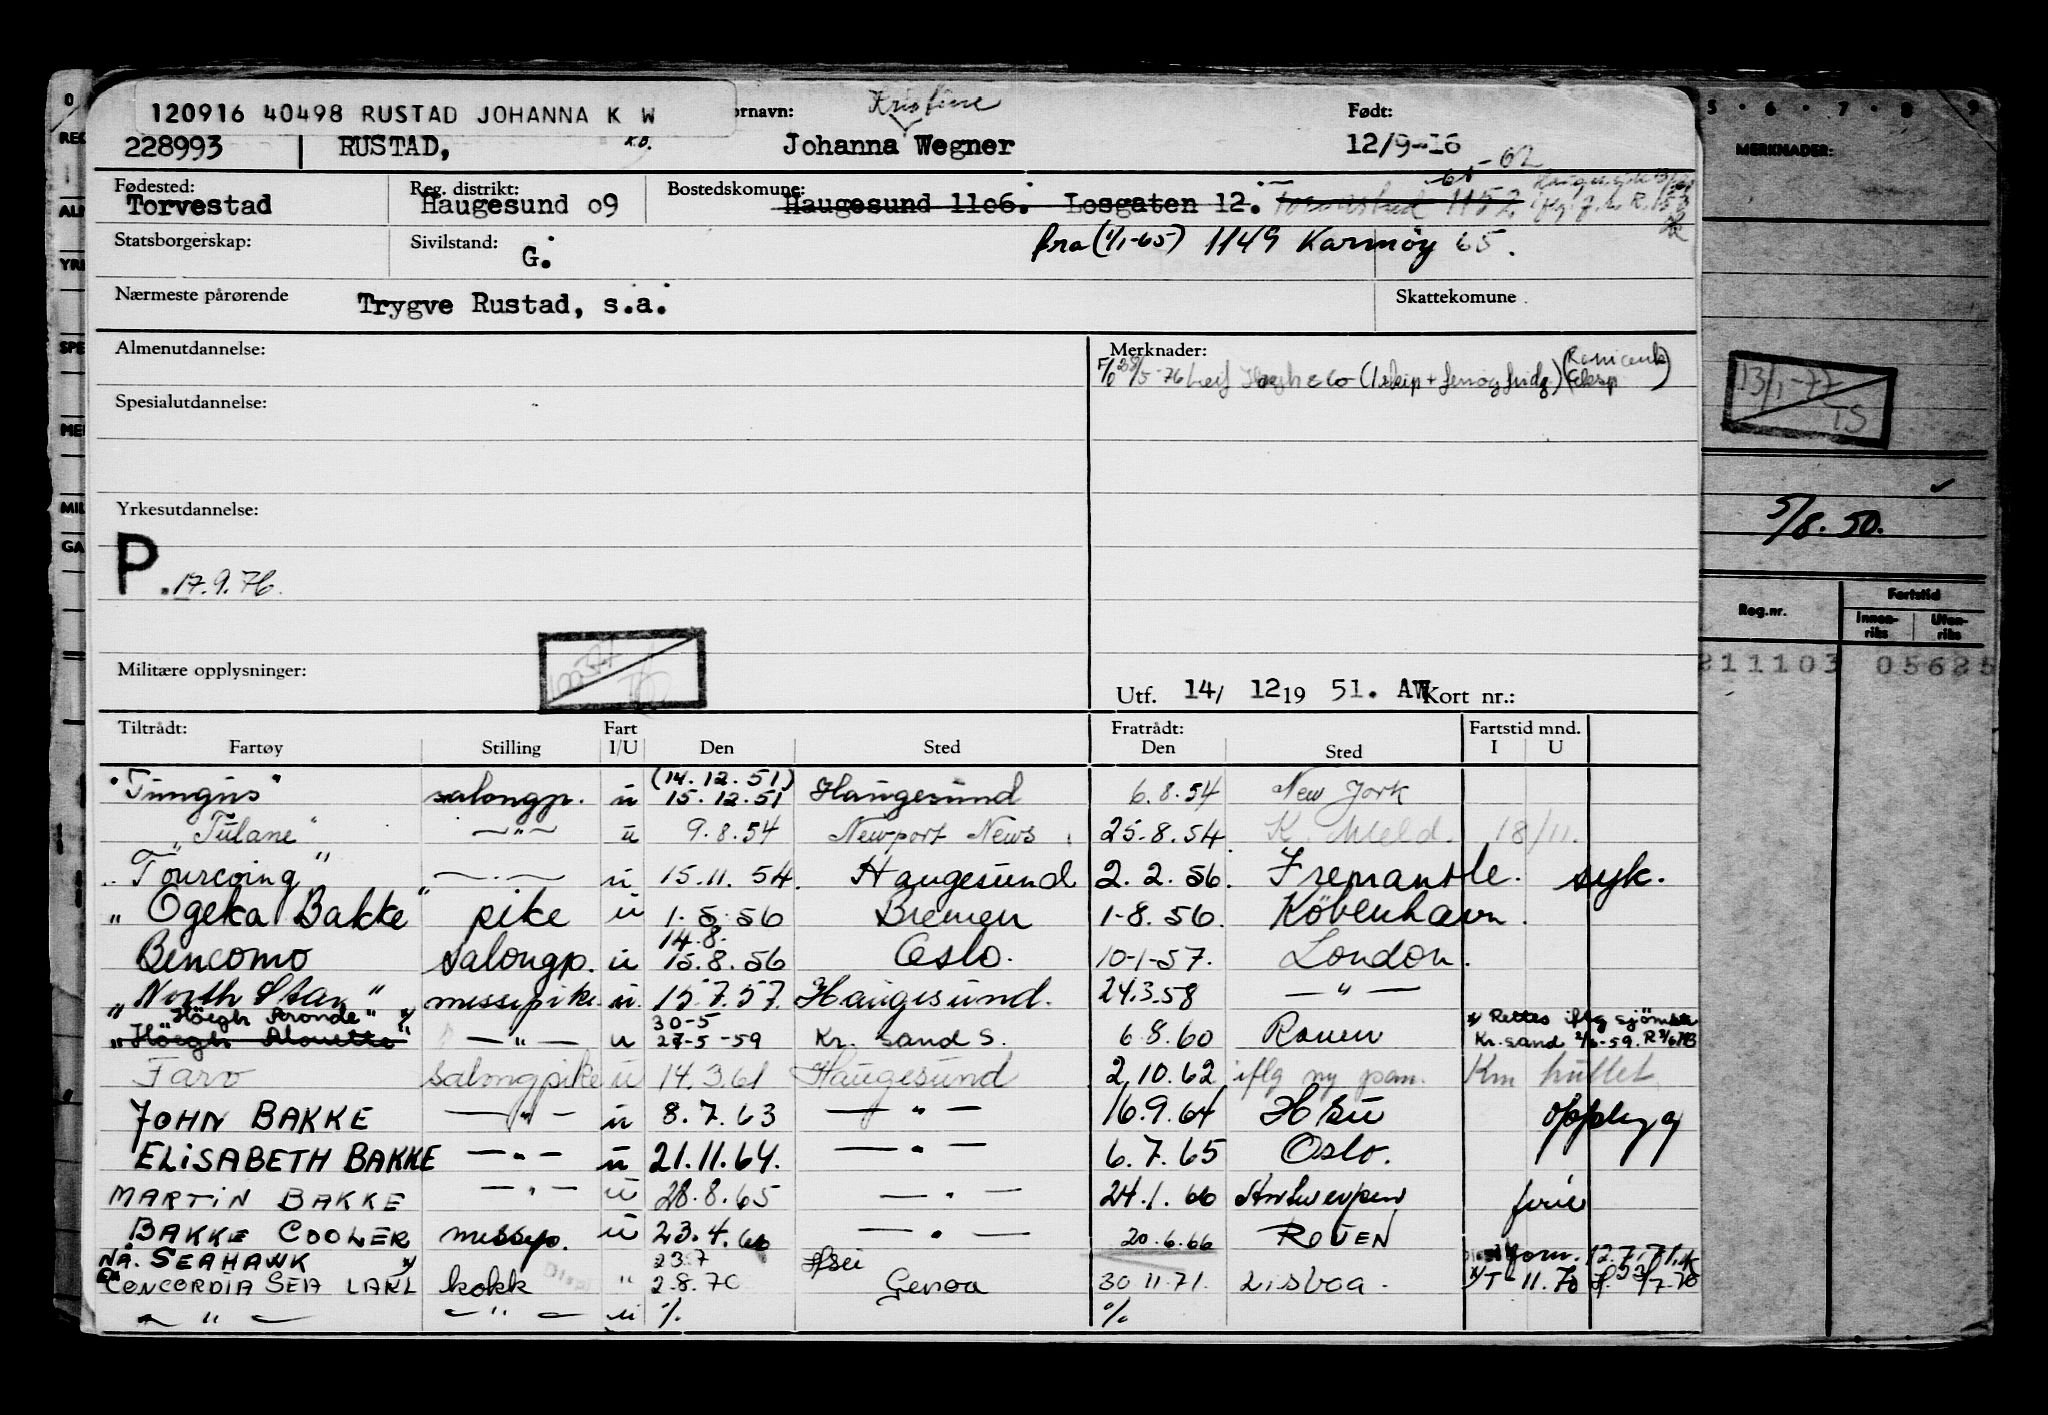 120916 40498 RUSTAD JOHANNA K W
ornavn: Kristine Født:
228993 RUSTAD, Johanna Wegner 12/9-16
Fødested: Reg. distrikt: Bostedskomune:
Torvestad Haugesund 09 Haugesund 1106. Losgaten 12. Torvastad 1152
Statsborgerskap: Sivilstand: G. fra (1/1-65) 1149 Karmøy 65.
Nærmeste pårørende Trygve Rustad, s.a. Skattekomune
Almenutdannelse: Merknader:
Spesialutdannelse:
Yrkesutdannelse:
P. 17.9.76.
Militære opplysninger:
Utf. 14/ 12 19 51. AW Kort nr.:
Tiltrådt: Fart Fratrådt: Fartstid mnd.
Fartøy Stilling I/U Den Sted Den Sted I U
(14.12.51)
"Tungus" salongp. u 15.12.51 Haugesund 6.8.54 New York
"Tulane" —"— u 9.8.54 Newport News 25.8.54. K. Meld. 18/11.
"Tourcoing" —"— u 15.11.54. Haugesund 2.2.56. Fremantle. syk.
"Ogeka Bakke" pike u 1.5.56 Bremen 1-8.56. København.
14.8.
Bencomo salongp. u 15.8.56 Oslo. 10-1-57. London.
"North Star" messepike u. 15.7.57. Haugesund. 24.3.58 —"—
"Höegh Aronde" x/ 30-5 x/ Rettes iflg sjömk
"Höegh Alouette" —"— u 27-5-59 Kr. sand S. 6.8.60 Rouen Kr.sand 2/6-59.
Faro salongpike u 14.3.61 Haugesund 2.10.62 iflg ny pam. Km hullet
JOHN BAKKE —"— u 8.7.63 —"— 16.9.64 Hsu opplegg
ELISABETH BAKKE —"— u 21.11.64. —"— 6.7.65 Oslo.
MARTIN BAKKE —"— u 28.8.65 —"— 24.1.66 Antwerpen ferie
BAKKE COOLER messep. u 23.4.66 —"— 20.6.66 ROUEN
NÅ. SEAHAWK x/ 23.7 Hsu
EX CONCORDIA SEA LARK kokk " 2.8.70 Genoa 30 11.71. Lisboa. x/ T- 11.70
—"— —"— u % %
5 · 6 · 7 · 8 · 9
MERKNADER:
13/1-77
TS
5/8.50.
Reg.nr. Fartstid
Innen-riks Uten-riks
211103 05625